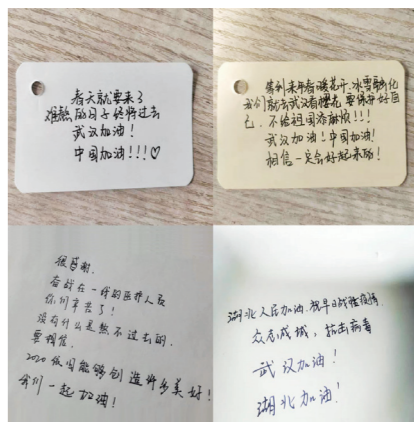 春天就要来了
难熬的日子终将过去
武汉加油！
中国加油!!!♡
等到来年春暖花开,冰雪融化
我们就去武汉看樱花,要保护好自
己.不给祖国添麻烦!!!
武汉加油！中国加油!
相信一定会好起来的!
很感谢.
奋战在一线的医护人员
你们辛苦了!
没有什么是熬不过去的.
要相信.
2020 依旧能够创造许多美好!
我们一起加油!
湖北人民加油.祝早日战胜疫情
众志成城，抗击病毒
武汉加油!
湖北加油!